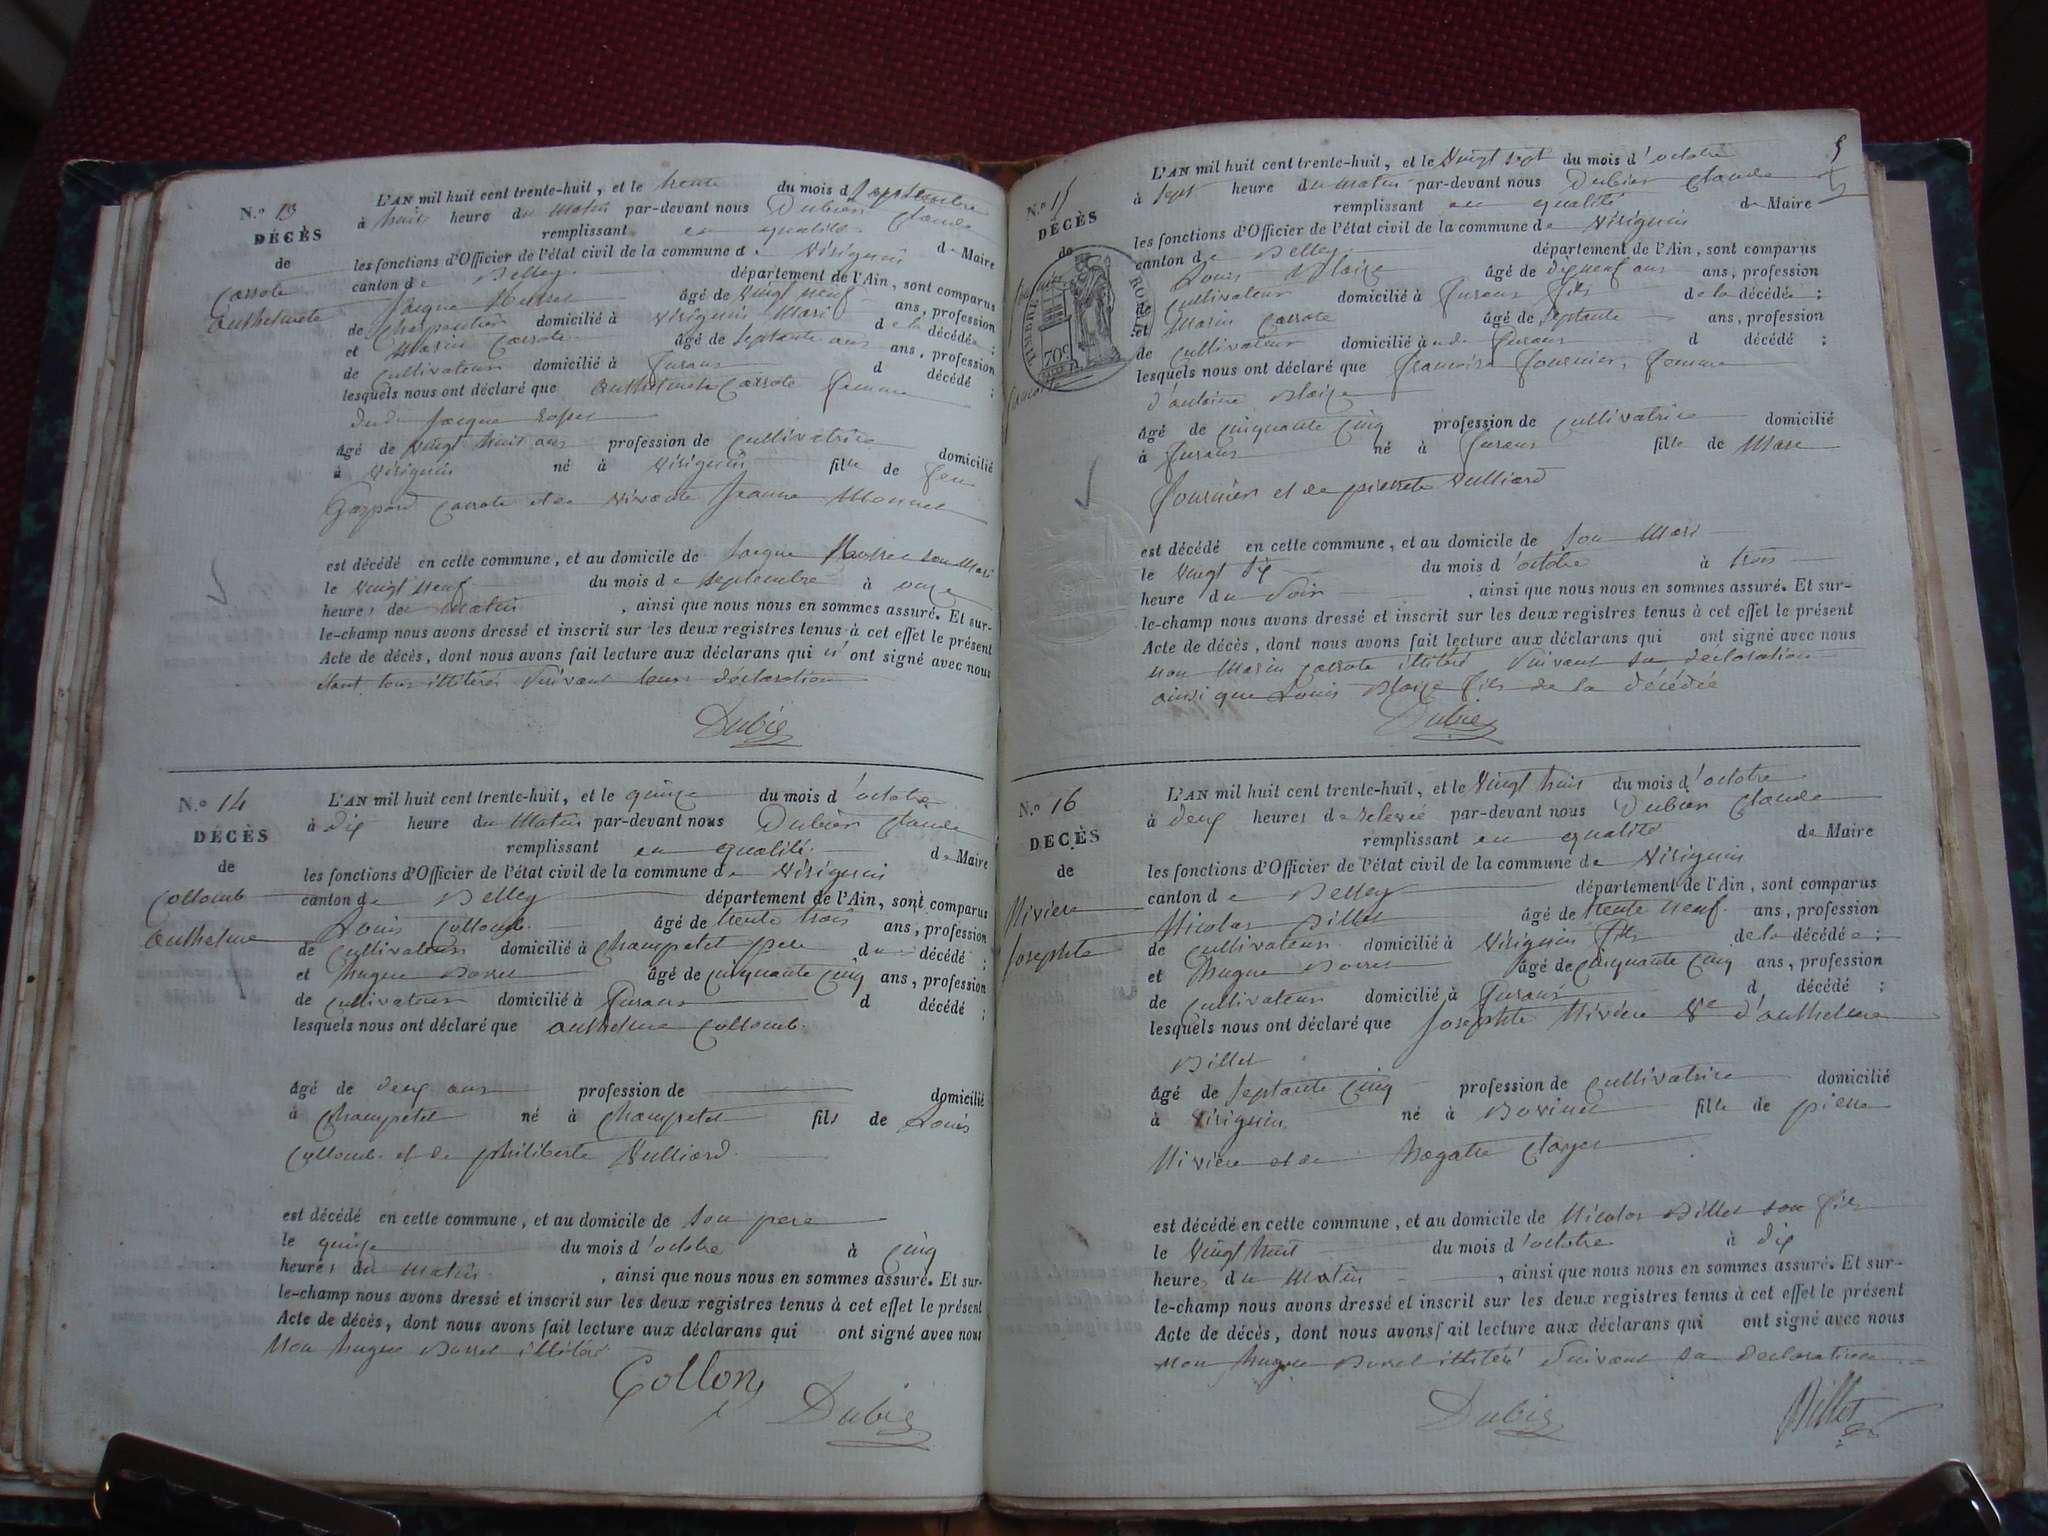 N.° 13
DÉCÈS
de
Carrote
Anthelmete
L'AN mil huit cent trente-huit, et le trente du mois d septembre
à huit heure du matin par-devant nous Dubien Claude
remplissant en qualité de Maire
les fonctions d'Officier de l'état civil de la commune de Virignin
canton de Belley département de l'Ain, sont comparus
Jacque Rosset âgé de vingt neuf ans, profession
de charpentier domicilié à Virignin Mari de la décédée;
et Marin Carrote âgé de septante ans ans, profession
de cultivateur domicilié à Furans d décédé;
lesquels nous ont déclaré que Anthelmete Carrote femme
dudit Jacque Rosset
âgé de vingt huit ans profession de cultivatrice domicilié
à Virignin né à Virignin fille de feu
Gaspard Carrote et de vivante Jeanne Monnet
est décédé en cette commune, et au domicile de Jacque Rosset son Mari
le vingt neuf du mois de septembre à onze
heures de matin, ainsi que nous nous en sommes assuré. Et sur-
le-champ nous avons dressé et inscrit sur les deux registres tenus à cet effet le présent
Acte de décès, dont nous avons fait lecture aux déclarans qui n'ont signé avec nous
étant tous illitéré suivant leurs déclaration
Dubien
N.° 14
DÉCÈS
de
Collomb
Anthelme
L'AN mil huit cent trente-huit, et le quinze du mois d'octobre
à dix heure du matin par-devant nous Dubien Claude
remplissant en qualité de Maire
les fonctions d'Officier de l'état civil de la commune de Virignin
canton de Belley département de l'Ain, sont comparus
Louis Collomb âgé de trente trois ans, profession
de cultivateur domicilié à Champtel pere du décédé;
et hugue Borrel âgé de cinquante cinq ans, profession
de cultivateur domicilié à Furans d décédé;
lesquels nous ont déclaré que anthelme Collomb
âgé de deux ans profession de domicilié
à Champtel né à Champtel fils de Louis
Collomb et de philiberte Vulliard
est décédé en cette commune, et au domicile de son pere
le quinze du mois d'octobre à cinq
heures du matin, ainsi que nous nous en sommes assuré. Et sur-
le-champ nous avons dressé et inscrit sur les deux registres tenus à cet effet le présent
Acte de décès, dont nous avons fait lecture aux déclarans qui ont signé avec nous
Non hugue Borrel illitéré
Collon
Dubien
5
N.° 15
DÉCÈS
de
TIMBRE ROYAL
70c
L'AN mil huit cent trente-huit, et le vingt sept du mois d'octobre
à sept heure du matin par-devant nous Dubien Claude
remplissant en qualité de Maire
les fonctions d'Officier de l'état civil de la commune de Virignin
canton de Belley département de l'Ain, sont comparus
Louis Blaize âgé de dix neuf ans ans, profession
de cultivateur domicilié à Furans fils de la décédée;
et Marin Carrote âgé de septante ans, profession
de cultivateur domicilié à Furans d décédé;
lesquels nous ont déclaré que françoise fournier, femme
d'antoine Blaize
âgé de cinquante cinq profession de cultivatrice domicilié
à Furans né à Furans fille de Marc
fournier et de pierrete Vulliard
est décédé en cette commune, et au domicile de son Mari
le vingt six du mois d'octobre à trois
heure du soir, ainsi que nous nous en sommes assuré. Et sur-
le-champ nous avons dressé et inscrit sur les deux registres tenus à cet effet le présent
Acte de décès, dont nous avons fait lecture aux déclarans qui ont signé avec nous
non Marin Carrote illitéré suivant sa déclaration
ainsi que Louis Blaize fils de la décédée
Dubien
N.° 16
DÉCÈS
de
Rivière
Josephte
L'AN mil huit cent trente-huit, et le vingt huit du mois d'octobre
à deux heures de relevée par-devant nous Dubien Claude
remplissant en qualité de Maire
les fonctions d'Officier de l'état civil de la commune de Virignin
canton de Belley département de l'Ain, sont comparus
Nicolas Billet âgé de trente neuf ans, profession
de cultivateur domicilié à Virignin fils de la décédée;
et hugue Borrel âgé de cinquante cinq ans, profession
de cultivateur domicilié à Furans d décédé;
lesquels nous ont déclaré que Josephte Rivière Ve d'anthelme
Billet
âgé de septante cinq profession de cultivatrice domicilié
à Virignin né à Bovinel fille de pierre
Rivière et de
est décédé en cette commune, et au domicile de Nicolas Billet son fils
le vingt huit du mois d'octobre à dix
heures du matin, ainsi que nous nous en sommes assuré. Et sur-
le-champ nous avons dressé et inscrit sur les deux registres tenus à cet effet le présent
Acte de décès, dont nous avons fait lecture aux déclarans qui ont signé avec nous
non hugue Borrel illitéré suivant sa déclaration
Dubien
Billet